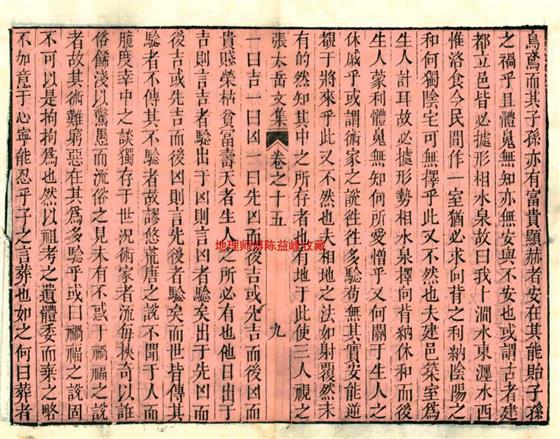 烏鳶而其子孫亦有富貴顯赫者安在其能貽子孫
之禍乎且體魄無知亦無安與不安也或謂古者建
都立邑皆必據形相水泉故曰我卜澗水東瀍水西
惟洛食今民間作一室猶必求向背之利納陰陽之
和何獨陰宅可無擇乎此又不然也夫建邑築室爲
生人計耳故必據形勢相水泉擇向背納休和而後
生人蒙利體魄無知何所愛憎乎又何關于生人之
休戚乎或謂術家之說徃徃多驗苟無其實安能逆
覩于將來乎此又不然也夫相地之法如射覆然未
有的然知其中之所存者也有地于此使三人視之
張太岳文集 卷之十五 九
一曰吉一曰凶一曰先凶而後吉或先吉而後凶而
貴賤榮枯貧富壽夭者生人之所必有也他日出于
吉則言吉者驗出于凶則言凶者驗矣出于先凶而
後吉或先吉而後凶則言先後者驗矣而世皆傳其
驗者不傳其不驗者故謬悠荒唐之說不聞于人而
臆度幸中之談獨存于世況術家者流每挾奇以誑
俗餙淺以驚愚而流俗之見未有不惑于禍福之說
者故其術難窮惡在其爲多驗乎或曰禍福之說固
不可以是拘拘爲也然以祖考之遺體委而棄之略
不如意于心寧能忍乎子之言葬也如之何曰葬者
地理师傅陈益峰收藏